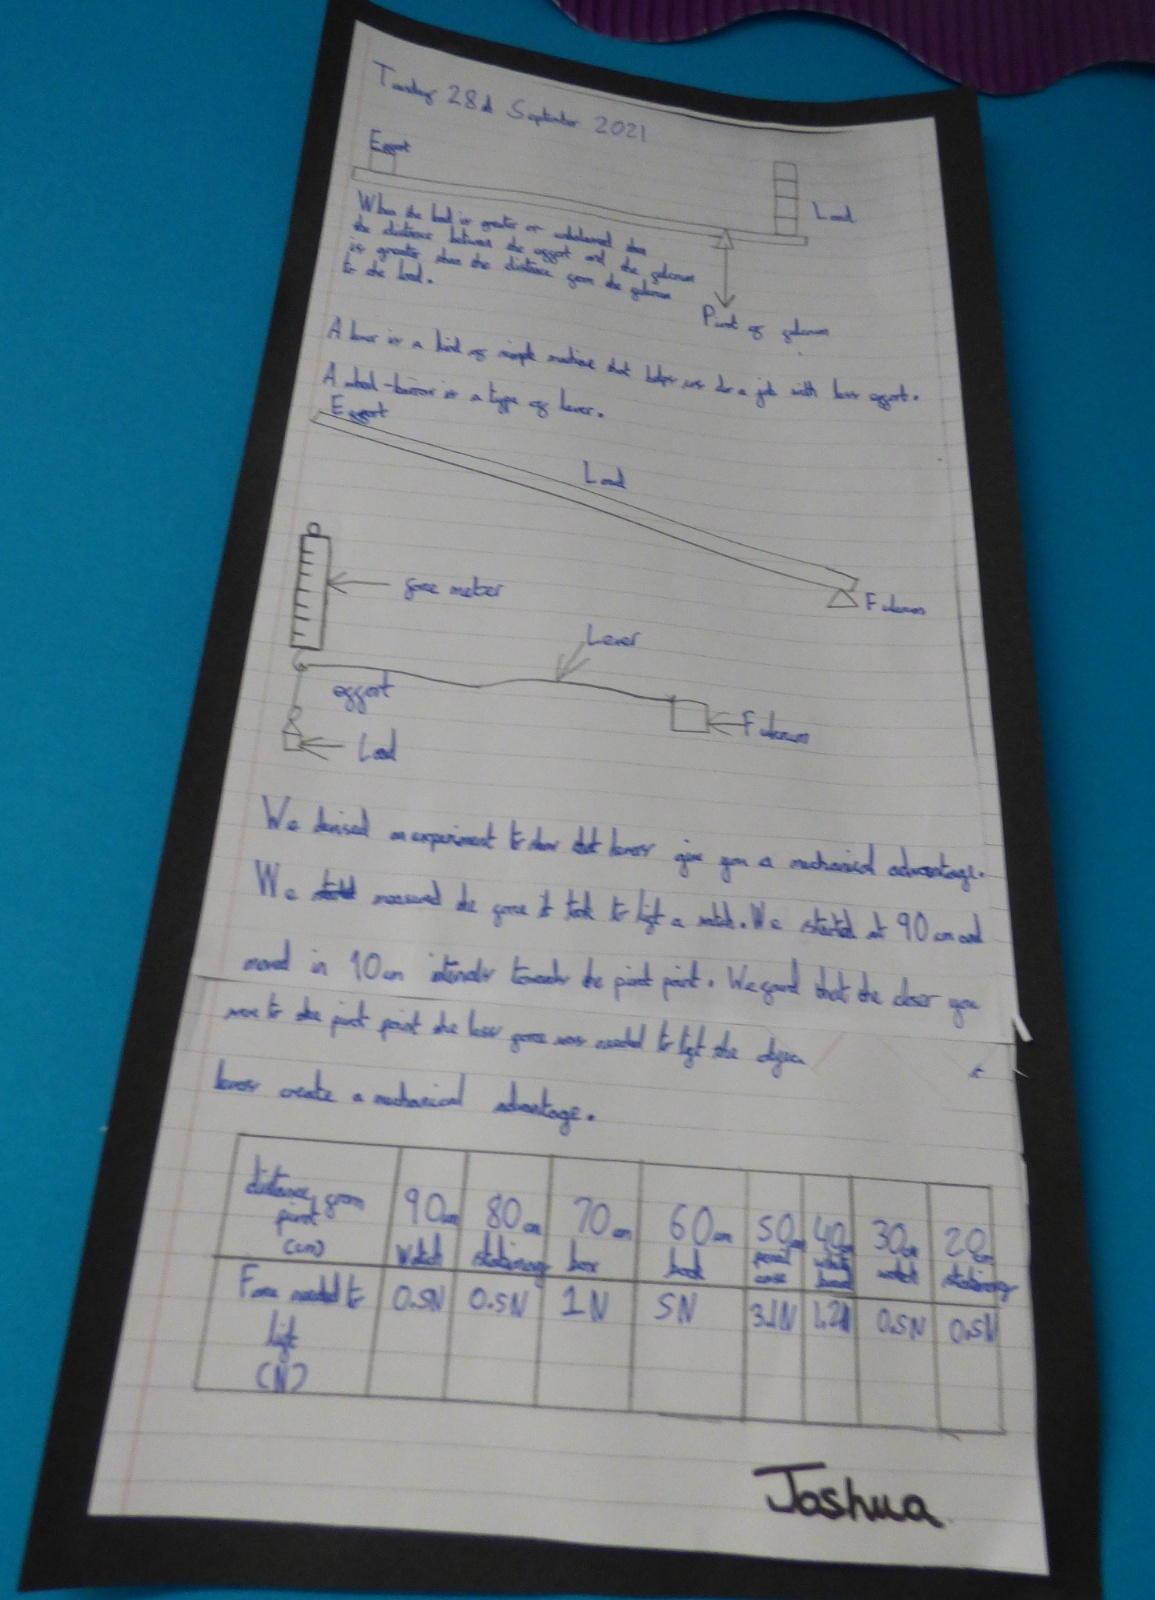 Tuesday 28th September 2021
Effort
Load
When the load is greater or unbalanced then
the distance between the effort and the fulcrum
is greater than the distance from the fulcrum
to the load.
Pivot of fulcrum
A lever is a kind of simple machine that helps us do a job with less effort.
A wheel-barrow is a type of lever.
Effort
Load
Fulcrum
force meter
Lever
effort
Fulcrum
Load
We devised an experiment to show that levers give you a mechanical advantage.
We measured the force it took to lift a watch. We started at 90 cm and
moved in 10cm intervals towards the pivot point. We found that the closer you
were to the pivot point the less force was needed to lift the
levers create a mechanical advantage.
distance from pivot (cm) 90cm watch 80cm stationary 70cm box 60cm book 50cm pencil case 40cm white board 30cm watch 20cm stationary
Force needed to lift (N) 0.5N 0.5N 1N 5N 3.1N 1.2N 0.5N 0.5N
Joshua